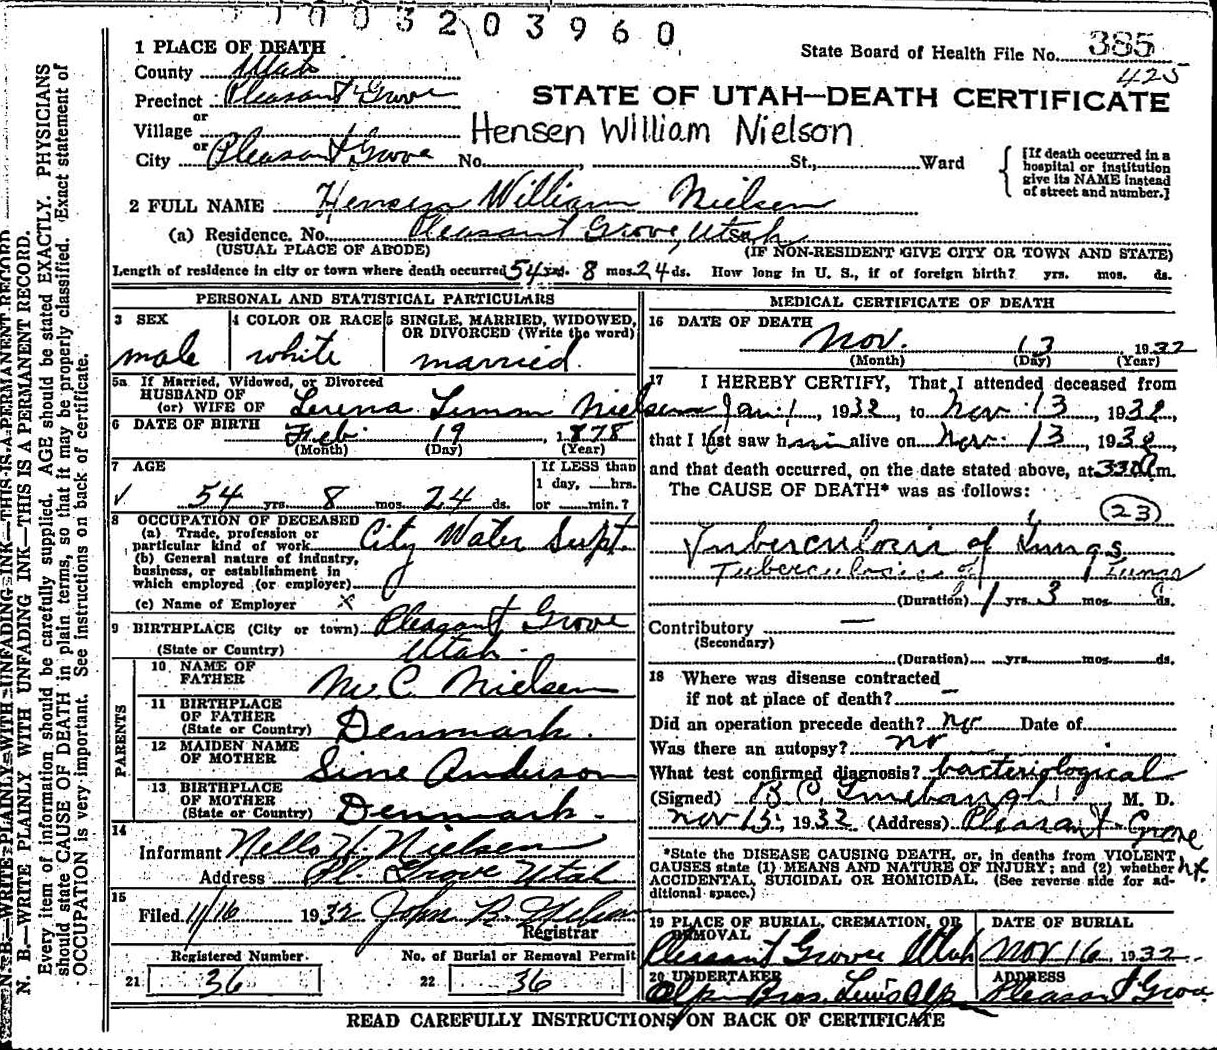 1003203960
1 PLACE OF DEATH
State Board of Health File No. 385
County Utah
425
Precinct Pleasant Grove
STATE OF UTAH—DEATH CERTIFICATE
or
Village
Hensen William Nielson
or
City Pleasant Grove No. , St., Ward
[If death occurred in a hospital or institution give its NAME instead of street and number.]
2 FULL NAME Hensen William Nielsen
(a) Residence. No. Pleasant Grove, Utah
(USUAL PLACE OF ABODE) (IF NON-RESIDENT GIVE CITY OR TOWN AND STATE)
Length of residence in city or town where death occurred 54 yrs. 8 mos. 24 ds. How long in U. S., if of foreign birth? yrs. mos. ds.
PERSONAL AND STATISTICAL PARTICULARS
3 SEX
male
4 COLOR OR RACE
white
5 SINGLE, MARRIED, WIDOWED, OR DIVORCED (Write the word)
married.
5a If Married, Widowed, or Divorced
HUSBAND OF
(or) WIFE OF Nielsen
6 DATE OF BIRTH Feb. 19, 1878
(Month) (Day) (Year)
7 AGE
54 yrs. 8 mos. 24 ds.
If LESS than
1 day, hrs.
or min.?
8 OCCUPATION OF DECEASED
(a) Trade, profession or
particular kind of work City Water Supt.
(b) General nature of industry,
business, or establishment in
which employed (or employer)
(c) Name of Employer x
9 BIRTHPLACE (City or town) Pleasant Grove
(State or Country) Utah.
PARENTS
10 NAME OF
FATHER Nielsen
11 BIRTHPLACE
OF FATHER
(State or Country) Denmark.
12 MAIDEN NAME
OF MOTHER Sine Anderson
13 BIRTHPLACE
OF MOTHER
(State or Country) Denmark.
14
Informant Nielsen
Address Pl. Grove Utah
15
Filed 11/16 1932 John
Registrar
Registered Number
21 36
No. of Burial or Removal Permit
22 36
MEDICAL CERTIFICATE OF DEATH
16 DATE OF DEATH
Nov. 13 1932
(Month) (Day) (Year)
17 I HEREBY CERTIFY, That I attended deceased from
Jan. 1, 1932, to Nov. 13, 1932,
that I last saw him alive on Nov. 13, 1932
and that death occurred, on the date stated above, at m.
The CAUSE OF DEATH* was as follows:
23
Tuberculosis of Lungs.
Tuberculosis of Lungs
(Duration) 1 yrs. 3 mos. ds.
Contributory —
(Secondary)
(Duration) yrs. mos. ds.
18 Where was disease contracted
if not at place of death? —
Did an operation precede death? no Date of
Was there an autopsy? no
What test confirmed diagnosis? bacteriological
(Signed) M. D.
Nov 15, 1932 (Address) Pleasant Grove
*State the DISEASE CAUSING DEATH, or, in deaths from VIOLENT
CAUSES state (1) MEANS AND NATURE OF INJURY; and (2) whether
ACCIDENTAL, SUICIDAL OR HOMICIDAL. (See reverse side for additional space.)
19 PLACE OF BURIAL, CREMATION, OR REMOVAL
Pleasant Grove Utah
DATE OF BURIAL
Nov 16, 1932
20 UNDERTAKER
Bros.
ADDRESS
Pleasant Grove
READ CAREFULLY INSTRUCTIONS ON BACK OF CERTIFICATE
N. B.—WRITE PLAINLY WITH UNFADING INK—THIS IS A PERMANENT RECORD
N. B.—WRITE PLAINLY WITH UNFADING INK—THIS IS A PERMANENT RECORD.
Every item of information should be carefully supplied. AGE should be stated EXACTLY. PHYSICIANS
should state CAUSE OF DEATH in plain terms, so that it may be properly classified. Exact statement of
OCCUPATION is very important. See instructions on back of certificate.